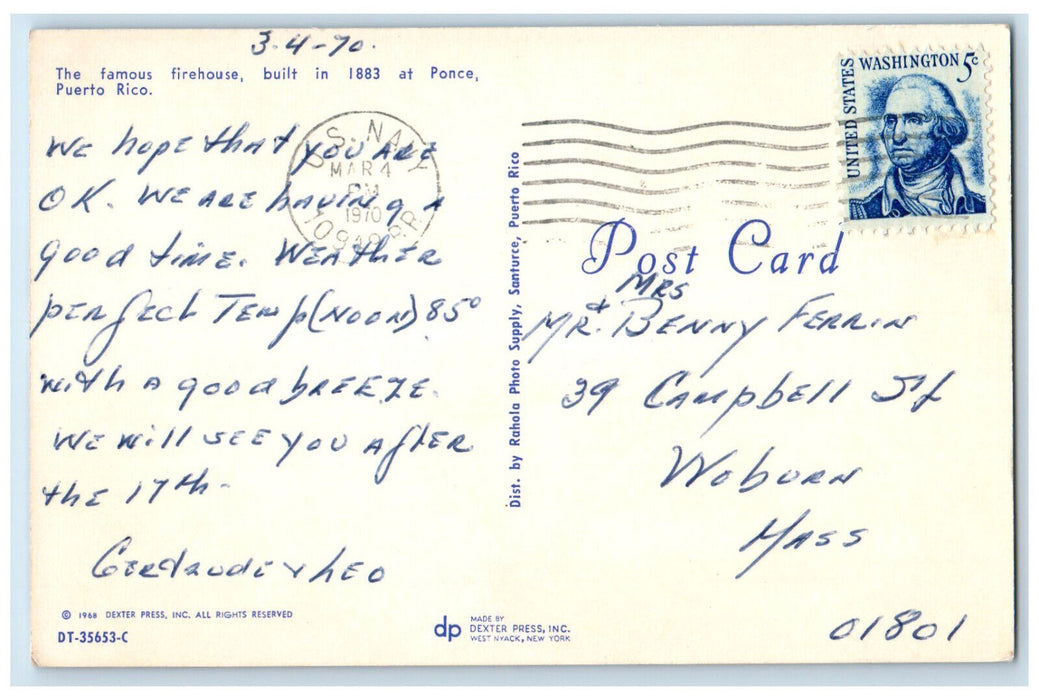 3-4-70.
The famous firehouse, built in 1883 at Ponce,
Puerto Rico.
We hope that you are
OK. We are having a
good time. Weather
perfect Temp (noon) 85°
with a good breeze.
We will see you after
the 17th.
Gertrude & Leo
© 1968 DEXTER PRESS, INC. ALL RIGHTS RESERVED
DT-35653-C
dp
MADE BY
DEXTER PRESS, INC.
WEST NYACK, NEW YORK
Dist. by Rahola Photo Supply, Santurce, Puerto Rico
U.S. NAVY
MAR 4
PM
1970
UNITED STATES
WASHINGTON 5c
Post Card
Mr. & Mrs Benny Ferrin
39 Campbell St
Woburn
Mass
01801